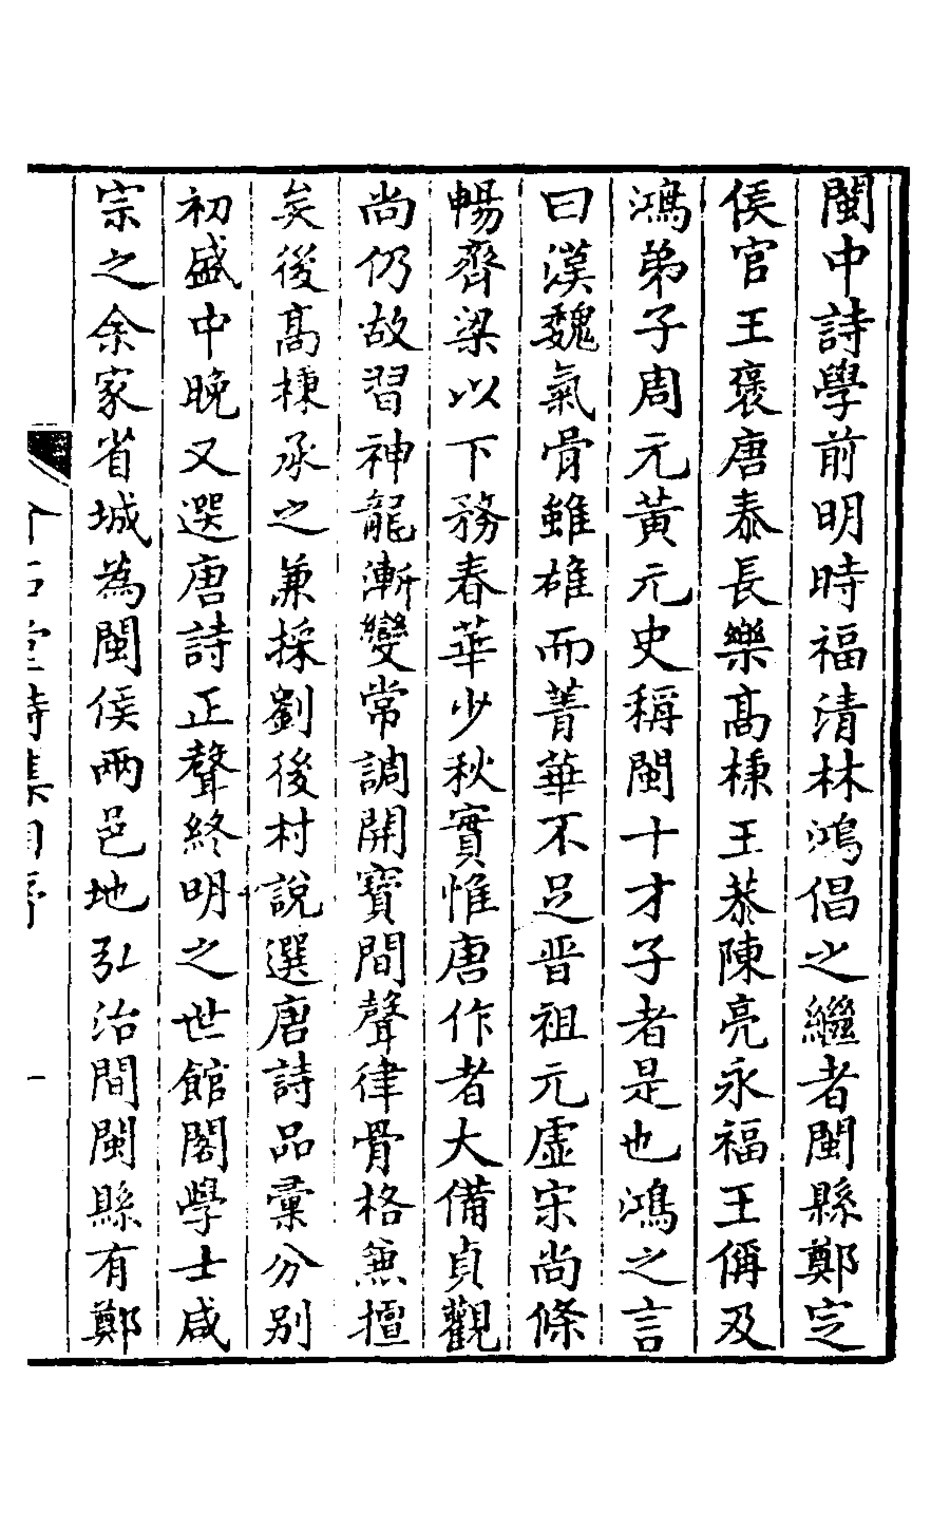 閩中詩學前明時福清林鴻倡之繼者閩縣鄭定
侯官王褒唐泰長樂高棅王恭陳亮永福王偁及
鴻弟子周元黃元史稱閩十才子者是也鴻之言
曰漢魏氣骨雖雄而菁華不足晋祖元虛宋尚條
暢齊梁以下務春華少秋實惟唐作者大備貞觀
尚仍故習神龍漸變常調開寶間聲律骨格兼擅
矣後高棅承之兼採劉後村說選唐詩品彙分別
初盛中晚又選唐詩正聲終明之世館閣學士咸
宗之余家省城為閩侯兩邑地弘治間閩縣有鄭
堂詩集
一